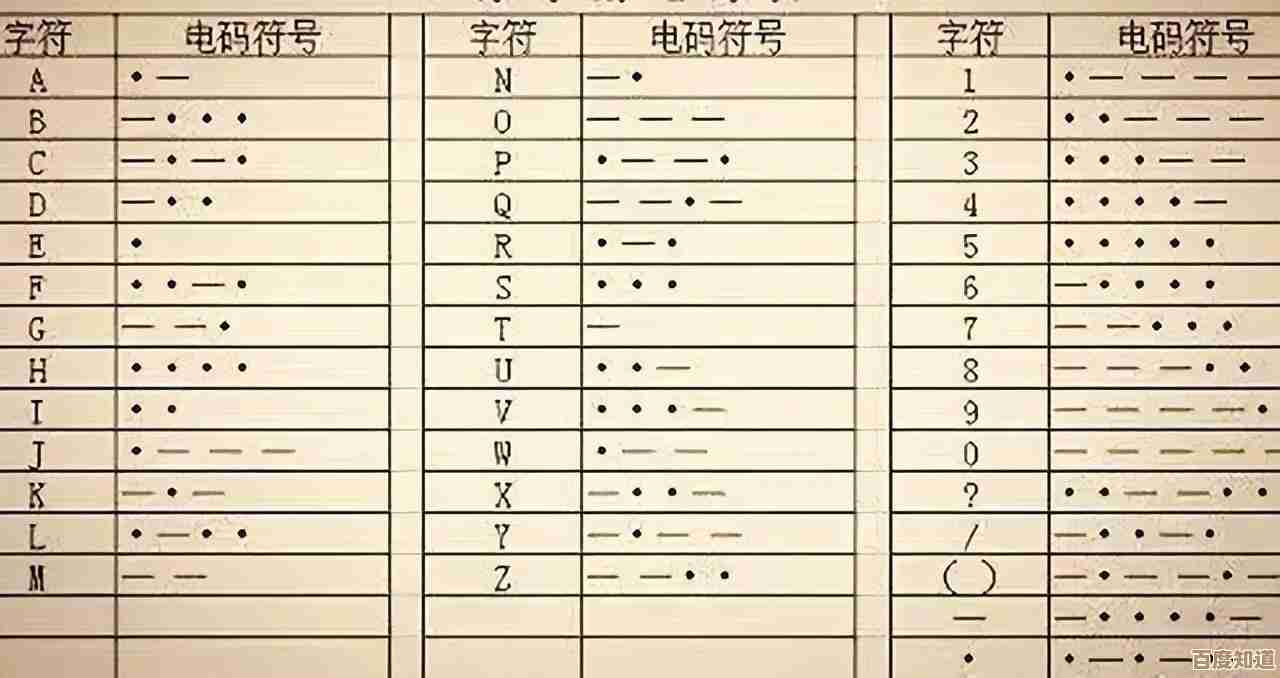 字符 电码符号 字符 电码符号 字符 电码符号
A •— N —• 1 •————
B —••• O ——— 2 ••———
C —•—• P •——• 3 •••——
D —•• Q ——•— 4 ••••—
E • R •—• 5 •••••
F ••—• S ••• 6 —••••
G ——• T — 7 ——•••
H •••• U ••— 8 ———••
I •• V •••— 9 ————•
J •——— W •—— 0 —————
K —•— X —••— ? ••——••
L •—•• Y —•—— / —••—•
M —— Z ——•• () —•——•—
— —••••—
• •—•—
百度知道